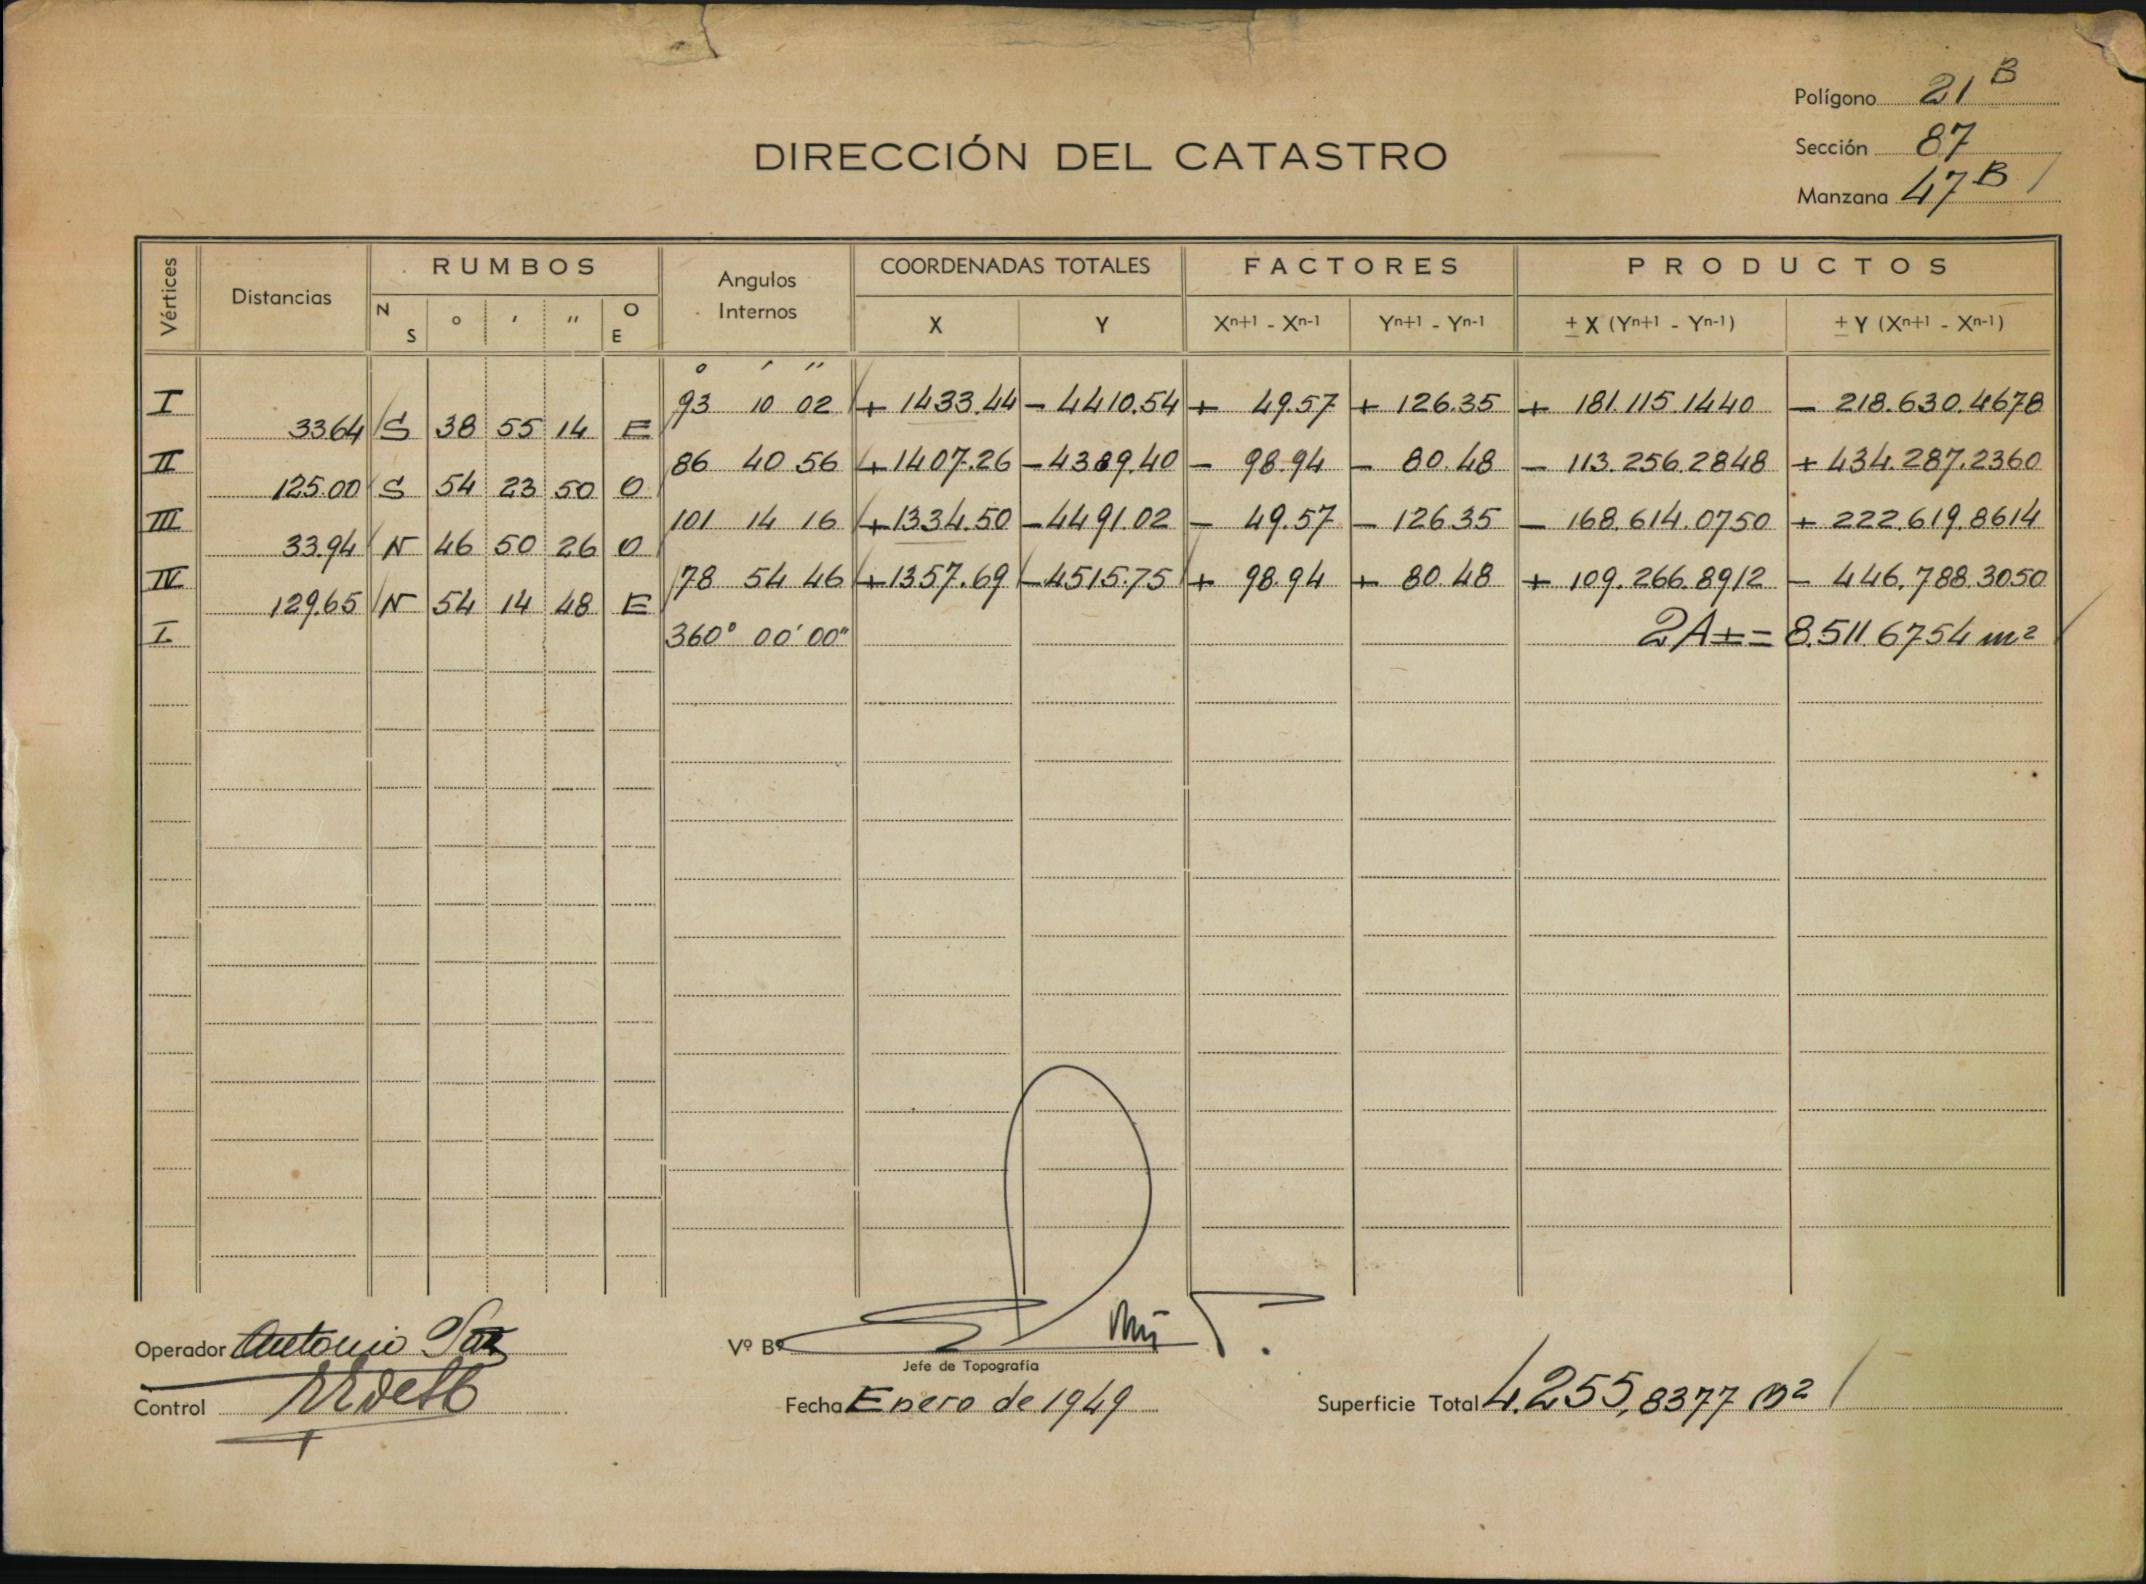 Polígono 21 B
Sección 87
Manzana 47 B /
DIRECCIÓN DEL CATASTRO
Vértices Distancias RUMBOS Angulos Internos COORDENADAS TOTALES FACTORES PRODUCTOS
N S ° ' " O E X Y Xn+1 - Xn-1 Yn+1 - Yn-1 ± X (Yn+1 - Yn-1) ± Y (Xn+1 - Xn-1)
° ' "
I 93 10 02 + 1433.44 - 4410.54 + 49.57 + 126.35 + 181.115.1440 - 218.630.4678
33.64 S 38 55 14 E
II 86 40 56 + 1407.26 - 4389.40 - 98.94 - 80.48 - 113.256.2848 + 434.287.2360
125.00 S 54 23 50 O
III 101 14 16 + 1334.50 - 4491.02 - 49.57 - 126.35 - 168.614.0750 + 222.619.8614
33.94 N 46 50 26 O
IV 78 54 46 + 1357.69 - 4515.75 + 98.94 + 80.48 + 109.266.8912 - 446.788.3050
129.65 N 54 14 48 E
I 360° 00' 00" 2A ± = 8.511.6754 m²
Operador Antonio
Vº Bº
Jefe de Topografía
Control
Fecha Enero de 1949
Superficie Total 4.255,8377 m² /